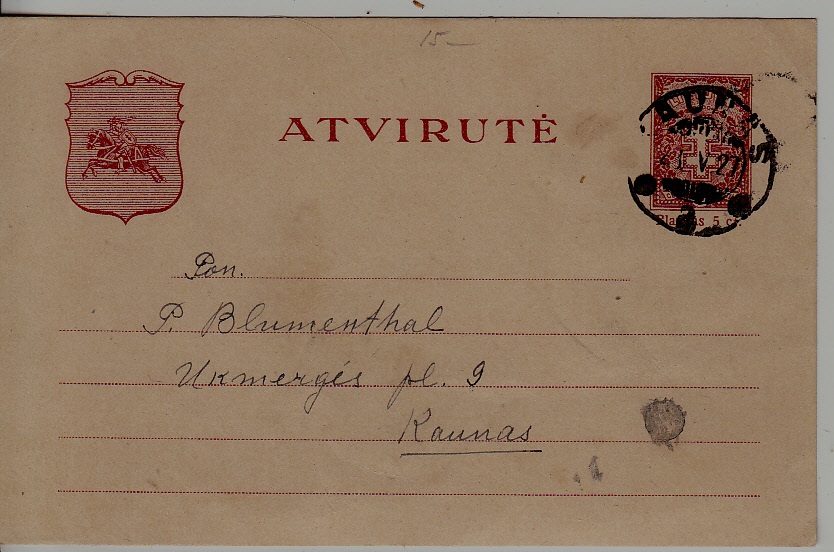 15 –
ATVIRUTĖ
V 27
5 ct.
Pon.
P. Blumenthal
Ukmergės pl. 9
Kaunas